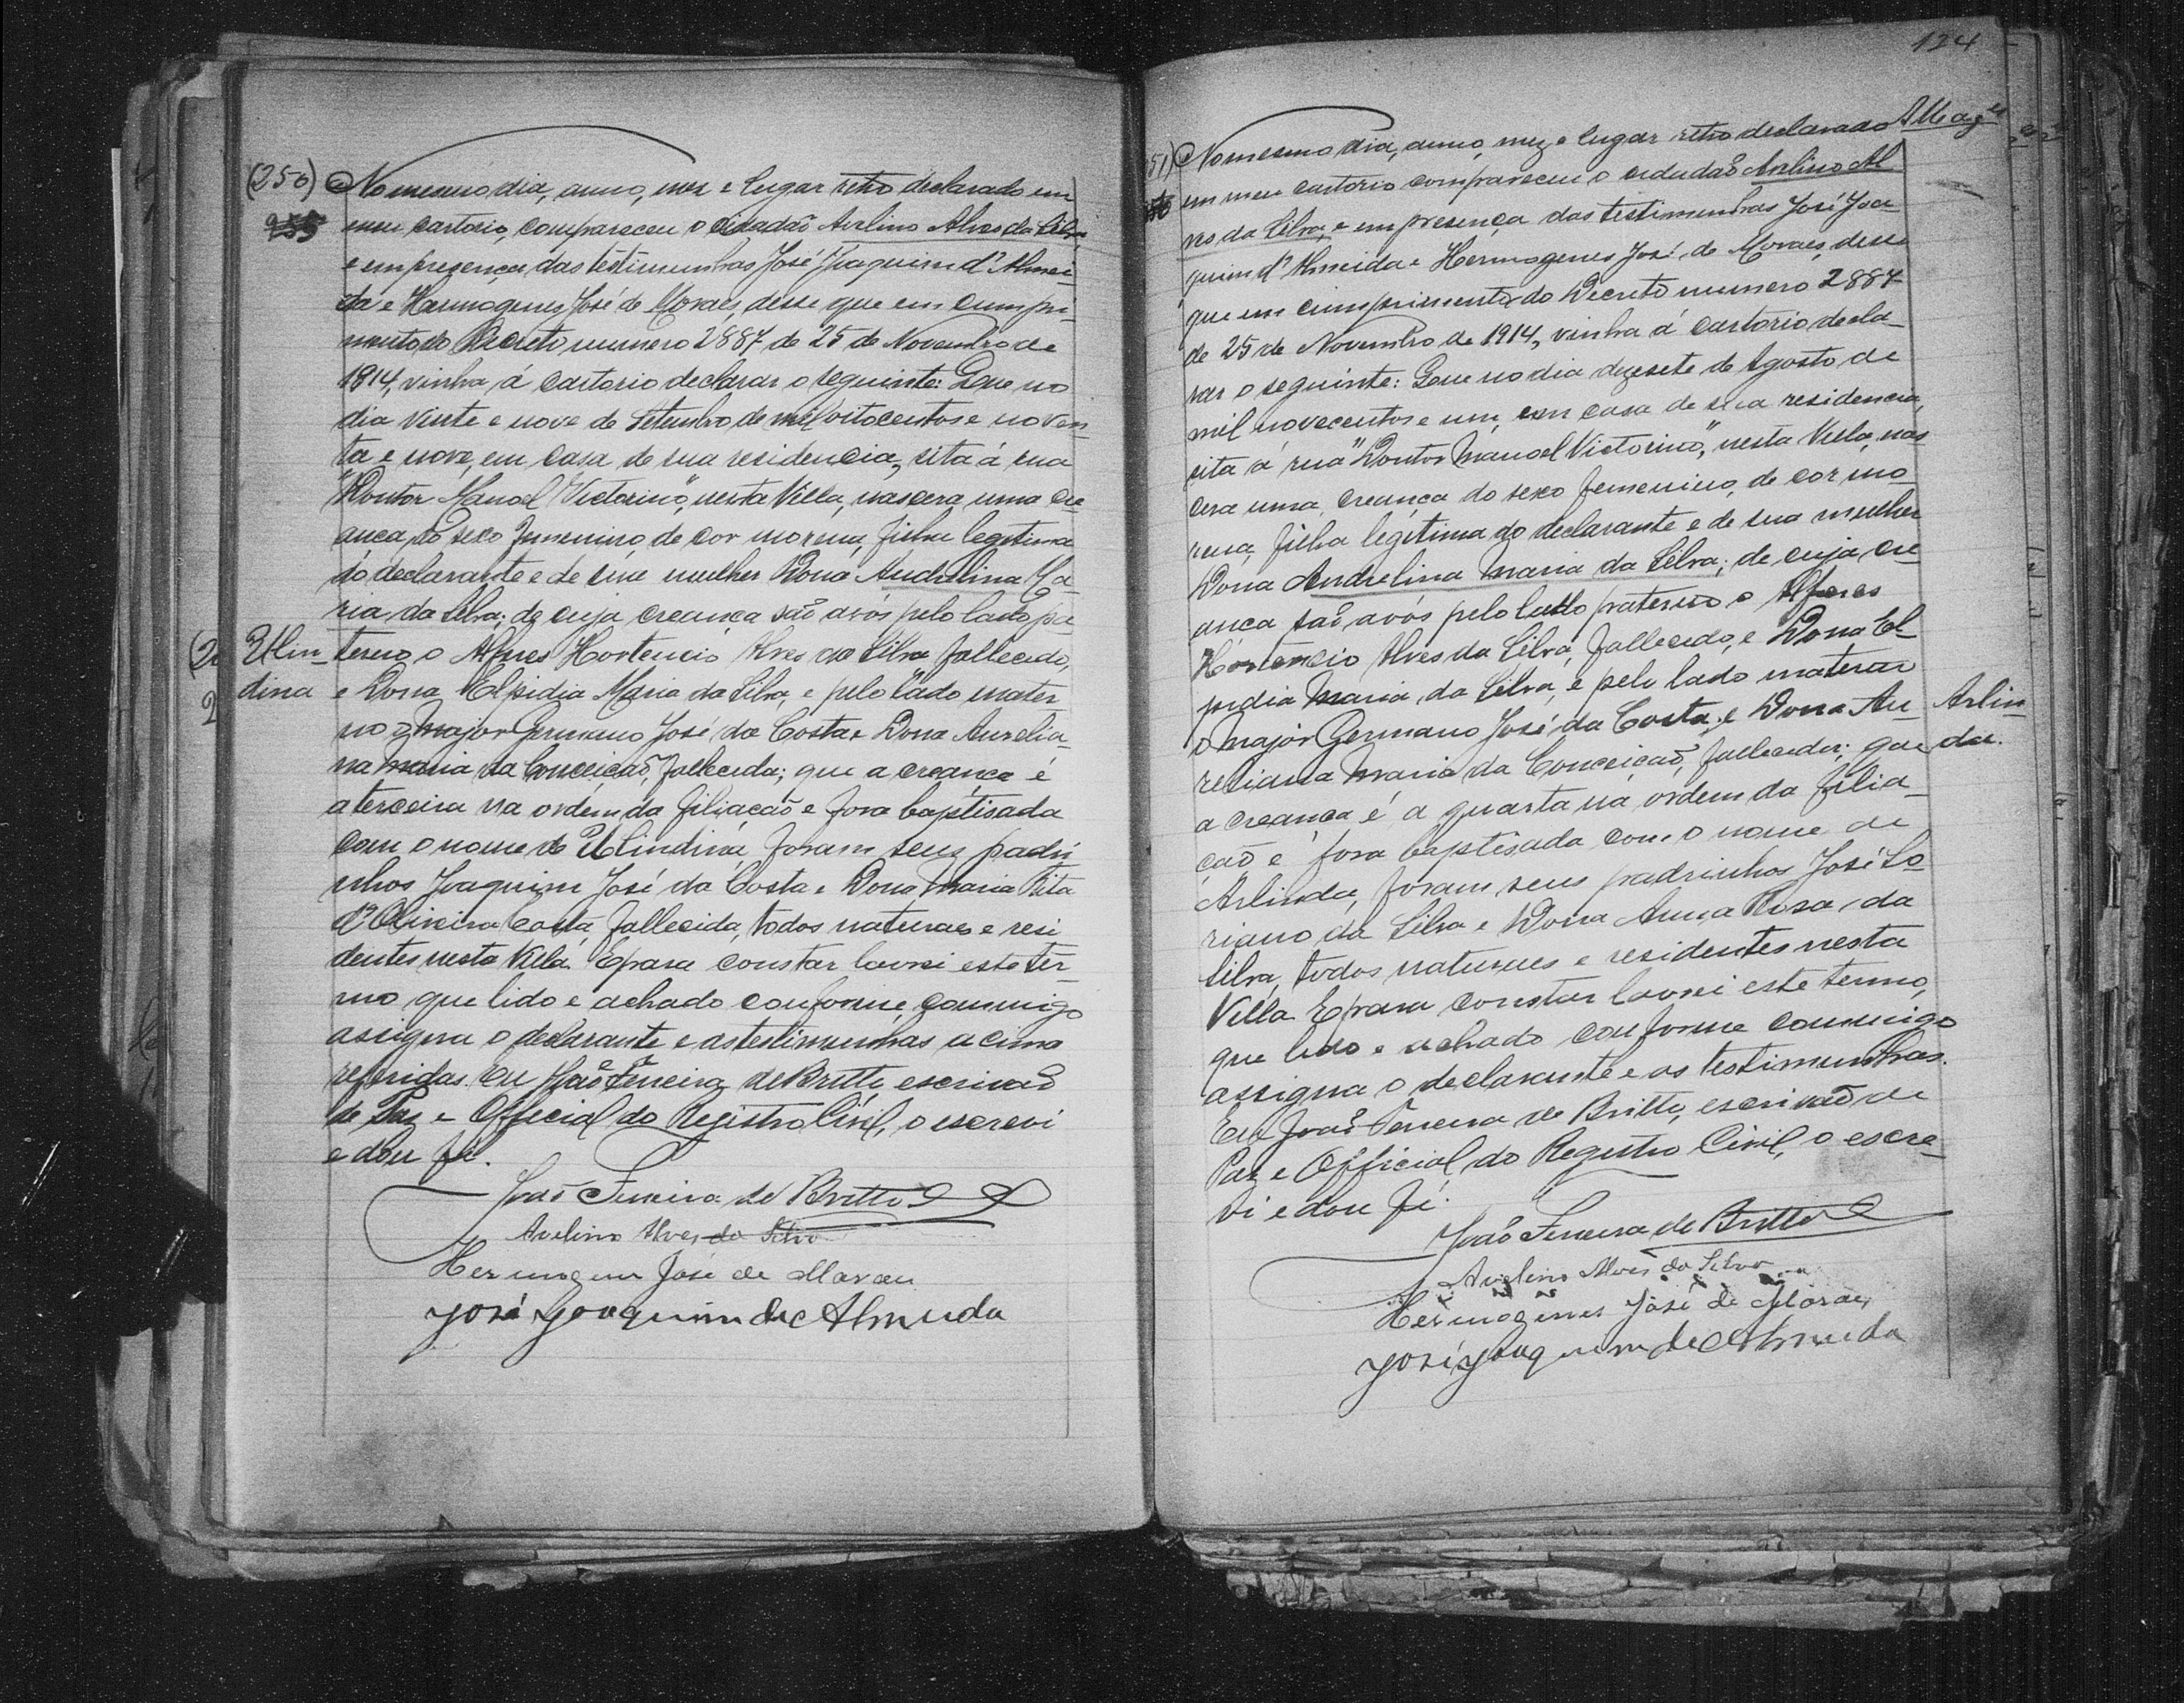 (250)
255
No mesmo dia, anno, mez e lugar retro declarado em
meu cartorio, compareceu o cidadão Avelino Alves da Silva
e em presença das testimunhas José Joaquim d'Almei-
da e Hermogenes José de Moraes, disse que em cumpri-
mento do Decreto numero 2887 de 25 de Novembro de
1914, vinha á cartorio declarar o seguinte: Que no
dia vinte e nove de Setembro de mil oitocentos e noven-
ta e nove, em casa de sua residencia, sita á rua
"Doutor Manoel Victorino", nesta Villa, nascera uma cre
ança do sexo femenino, de cor morena, filha legitima
do declarante e de sua mulher Dona Andrelina Ma-
ria da Silva; de cuja creança são avós pelo lado pa-
terno o Alferes Hortencio Alves da Silva, fallecido,
e Dona Elpidia Maria da Silva, e pelo lado mater
no o Major Germano José da Costa e Dona Aurelia-
na Maria da Conceição, fallecida; que a creança é
a terceira na ordem da filiação e fora baptisada
com o nome de foram seus padri
nhos Joaquim José da Costa e Dona Maria Rita
d'Oliveira Costa, fallecida, todos naturaes e resi
dentes nesta Villa. E para constar lavrei este ter-
mo que lido e achado conforme, commigo
assigna o declarante e as testimunhas acima
referidas. Eu João Ferreira de Britto, escrivão
de Paz e Official do Registro Civil, o escrevi
e dou fé.
João Ferreira de Britto
Avelino Alves da Silva
Hermogenes José de Moraes
José Joaquim de Almeida
dina
124
51)
No mesmo dia, anno, mez e lugar retro declarado
em meu cartorio compareceu o cidadão Avelino Al
ves da Silva, e em presença das testimunhas José Joa-
quim d'Almeida e Hermogenes José de Moraes, disse
que em cumprimento do Decreto numero 2887
de 25 de Novembro de 1914, vinha á cartorio decla-
rar o seguinte: Que no dia dezesete de Agosto de
mil novecentos e um, em casa de sua residencia,
sita á rua "Doutor Manoel Victorino", nesta Villa, nas
cera uma creança do sexo femenino, de cor mo-
rena, filha legitima do declarante e de sua mulher
Dona Andrelina Maria da Silva; de cuja cre
ança são avós pelo lado paterno o Alferes
Hortencio Alves da Silva, fallecido, e Dona El-
pidia Maria da Silva, e pelo lado materno
o Major Germano José da Costa, e Dona Au-
reliana Maria da Conceição, fallecida; que
a creança é a quarta na ordem da filia-
ção e fora baptisada com o nome de
Arlinda, foram seus padrinhos José Lo
riano da Silva e Dona Anna Rosa da
Silva, todos naturaes e residentes nesta
Villa. E para constar lavrei este termo,
que lido e achado conforme commigo
assigna o declarante e as testimunhas.
Eu João Ferreira de Britto, escrivão de
Paz e Official do Registro Civil, o escre-
vi e dou fé.
João Ferreira de Britto
Avelino Alves da Silva
Hermogenes José de Moraes
José Joaquim de Almeida
Arlin-
da.